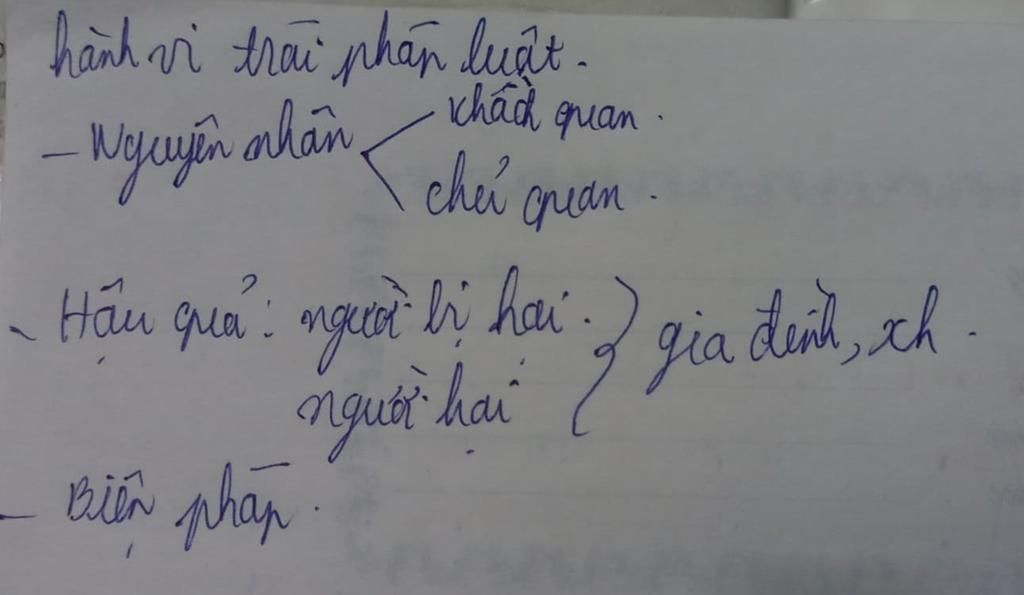 hành vi trái pháp luật.
- Nguyên nhân
khách quan.
chủ quan.
- Hậu quả: người bị hại.
người hại
gia đình, xh.
- Biện pháp.